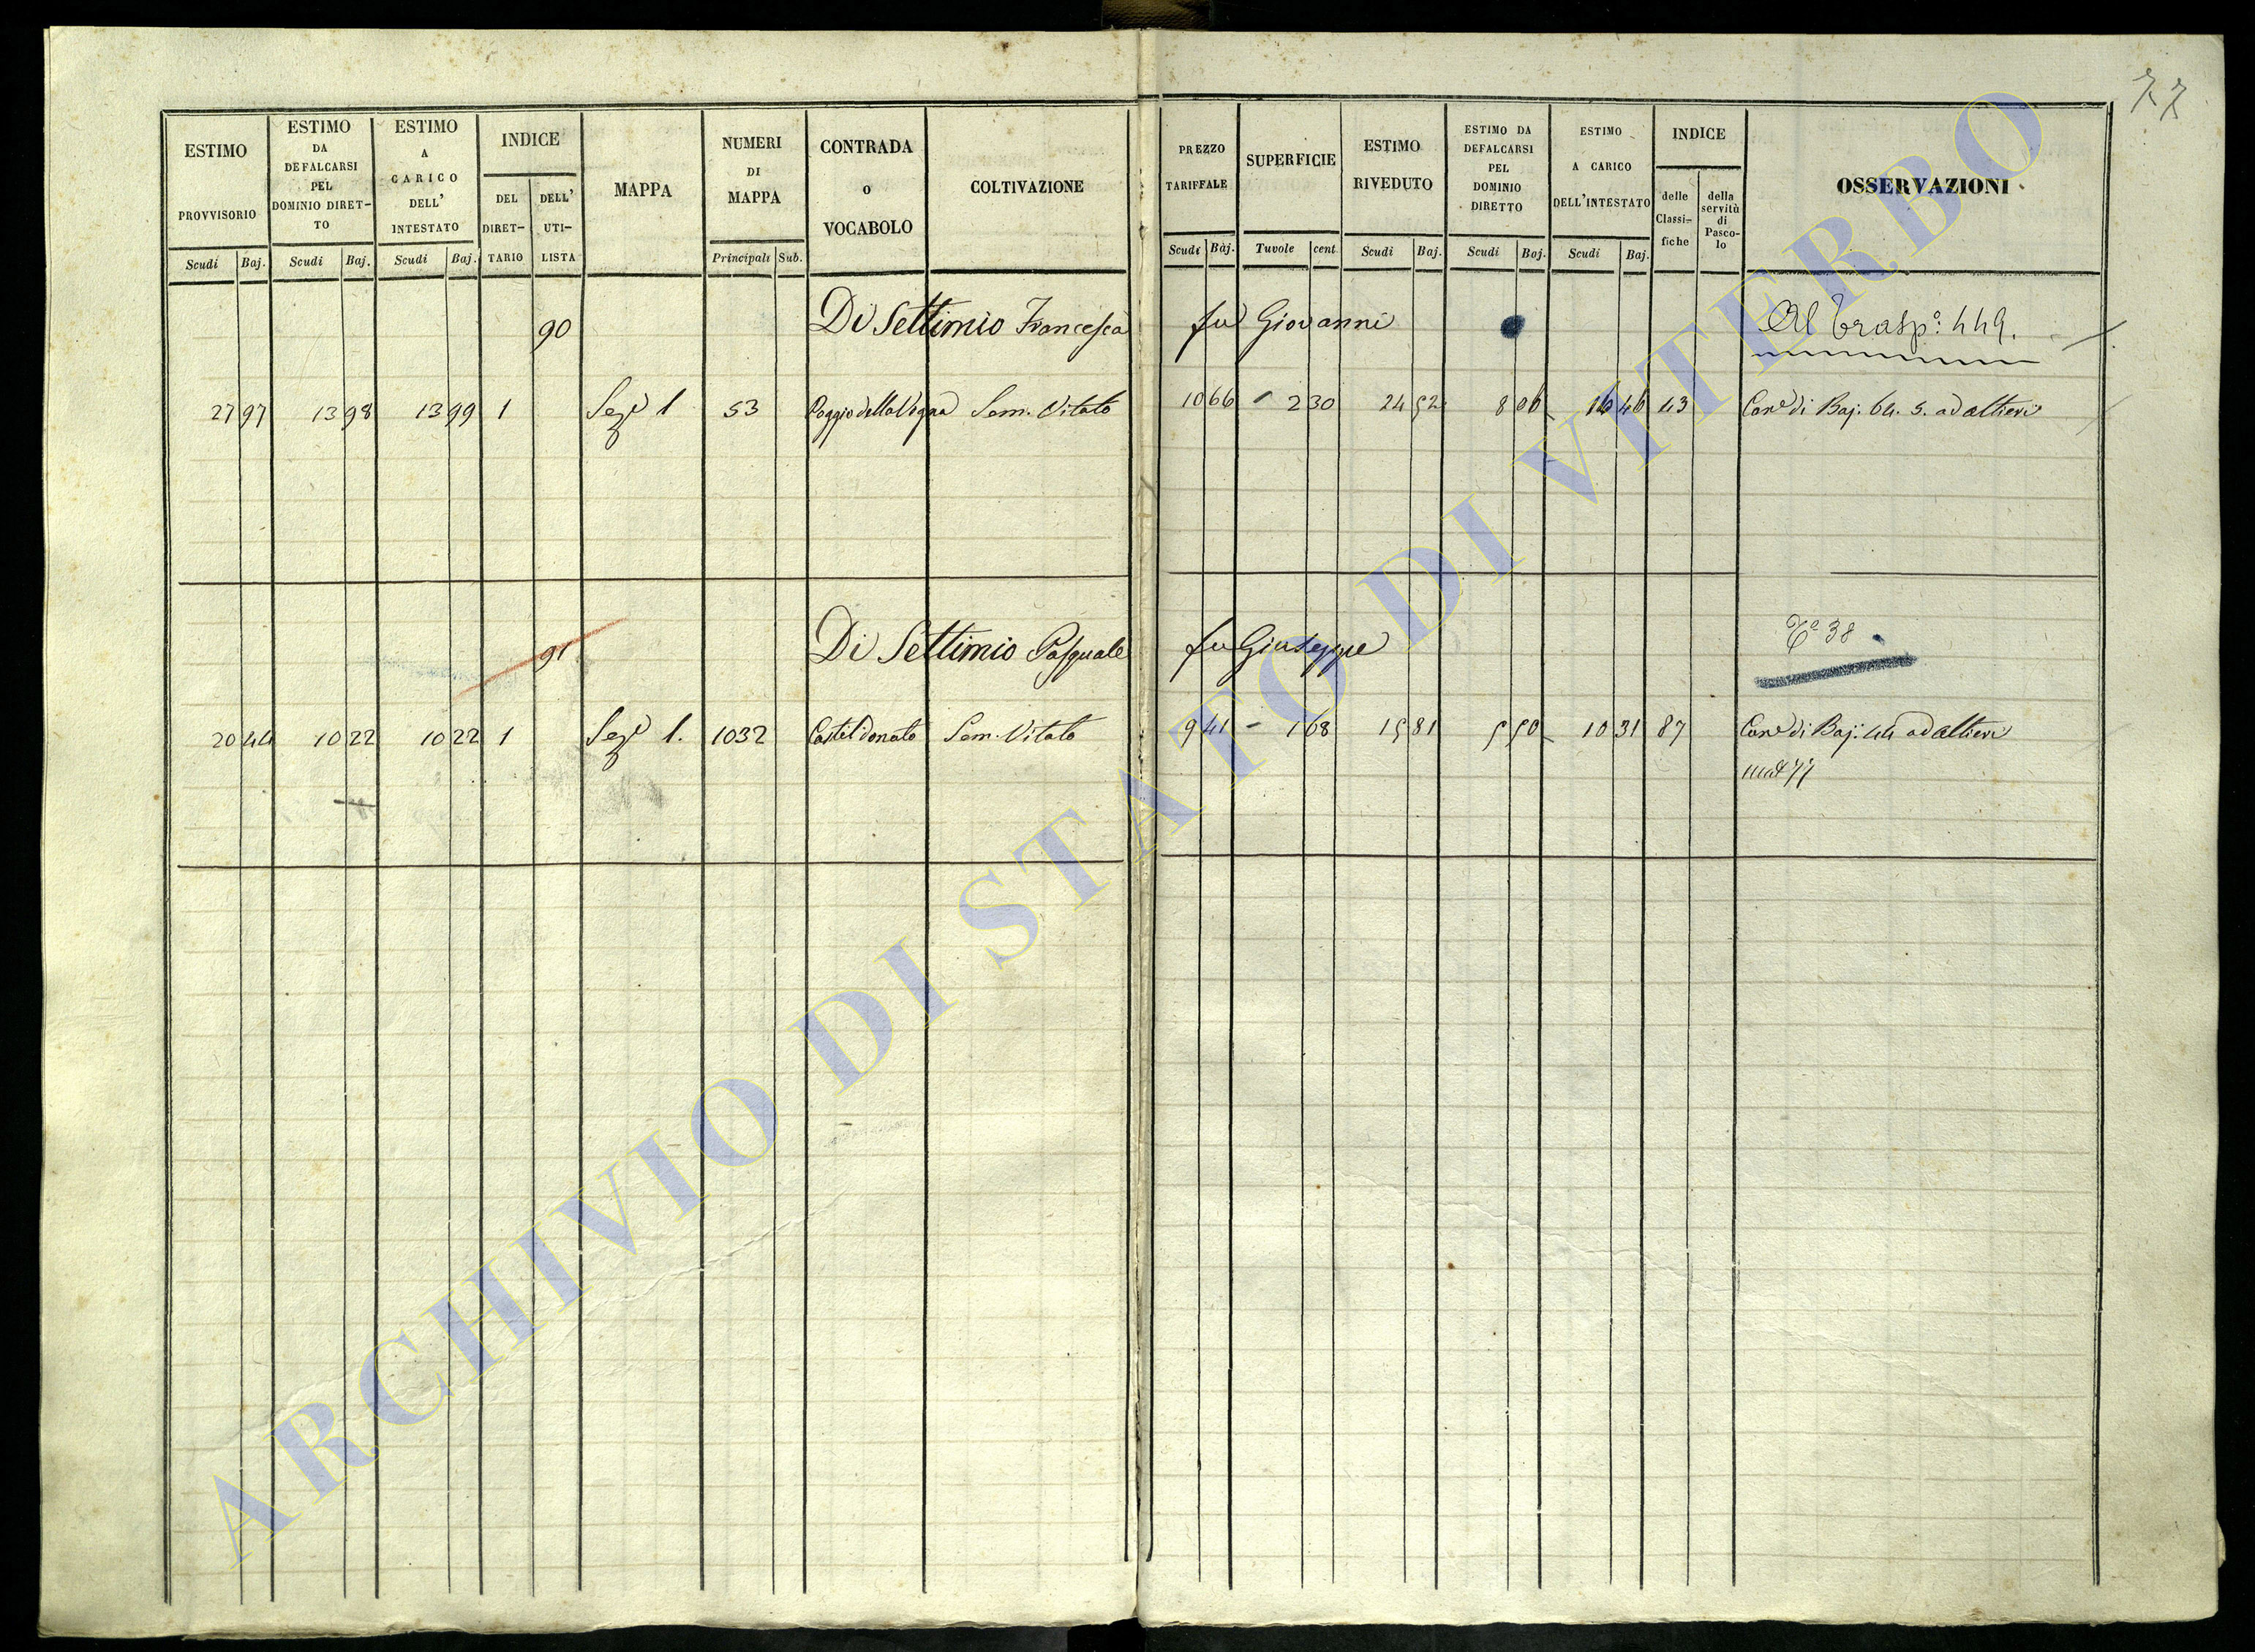 77
ESTIMO PROVVISORIO
ESTIMO DA DEFALCARSI PEL DOMINIO DIRET-TO
ESTIMO A CARICO DELL' INTESTATO
INDICE
DEL DIRET-TARIO
DELL' UTI-LISTA
MAPPA
NUMERI DI MAPPA
CONTRADA o VOCABOLO
COLTIVAZIONE
PREZZO TARIFFALE
SUPERFICIE
ESTIMO RIVEDUTO
ESTIMO DA DEFALCARSI PEL DOMINIO DIRETTO
ESTIMO A CARICO DELL'INTESTATO
INDICE
delle Classi-fiche
della servitù di Pasco-lo
OSSERVAZIONI
Scudi Baj. Scudi Baj. Scudi Baj. Principali Sub. Scudi Baj. Tavole cent. Scudi Baj. Scudi Baj. Scudi Baj.
90 Di Settimio Francesca fu Giovanni Al Trasp.º: 449.
27 97 13 98 13 99 1 Sez.e 1 53 Poggio della Vigna Sem. Vitato 10 66 - 2 30 24 52 8 06 16 46 43 Con.e di Baj. 64. 5. ad Altieri
91 Di Settimio Pasquale fu Giuseppe T.e 38
20 44 10 22 10 22 1 Sez.e 1. 1032 Castel donato Sem. Vitato 9 41 - 1 68 15 81 5 50 10 31 87 Con.e di Baj: 44 ad Altieri
mat 77
ARCHIVIO DI STATO DI VITERBO